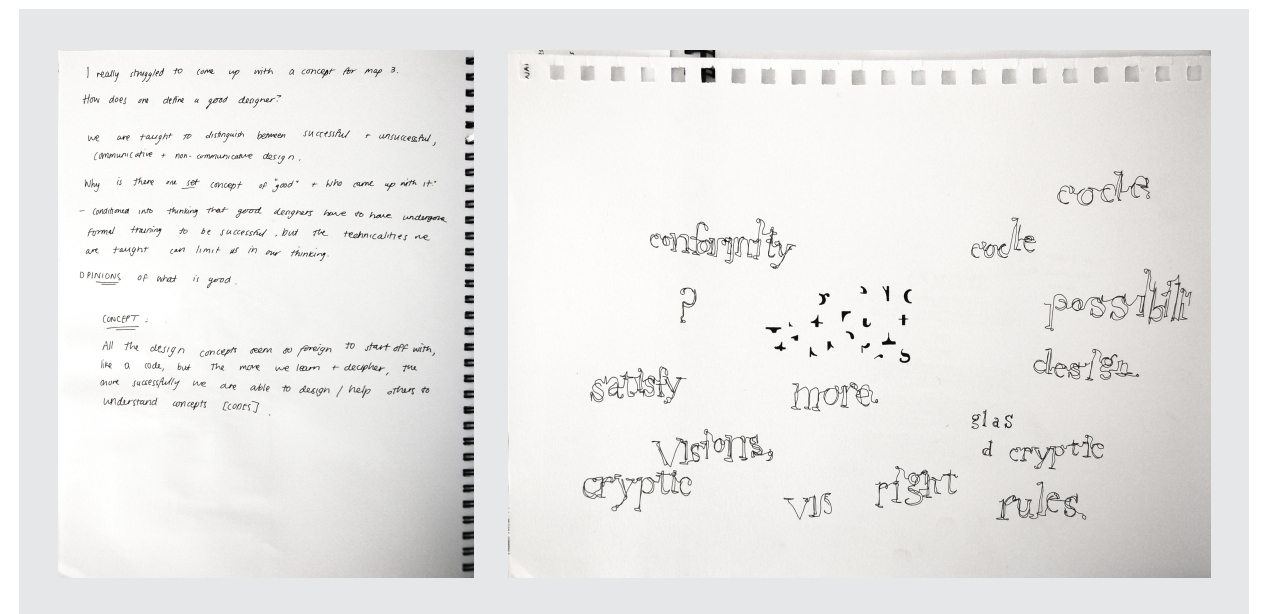 I really struggled to come up with a concept for map 3.
How does one define a good designer?
we are taught to distinguish between successful + unsuccessful,
communicative + non-communicative design.
Why is there one set concept of "good" + who came up with it?
- conditioned into thinking that good designers have to have undergone
formal training to be successful, but the technicalities we
are taught can limit us in our thinking.
OPINIONS of what is good.
CONCEPT:
All the design concepts seem so foreign to start off with,
like a code, but the more we learn + decipher, the
more successfully we are able to design / help others to
understand concepts [CODES].
code
conformity
code
?
possibili
design.
satisfy
more.
glas
visions,
d cryptic
cryptic
vis
right
rules.